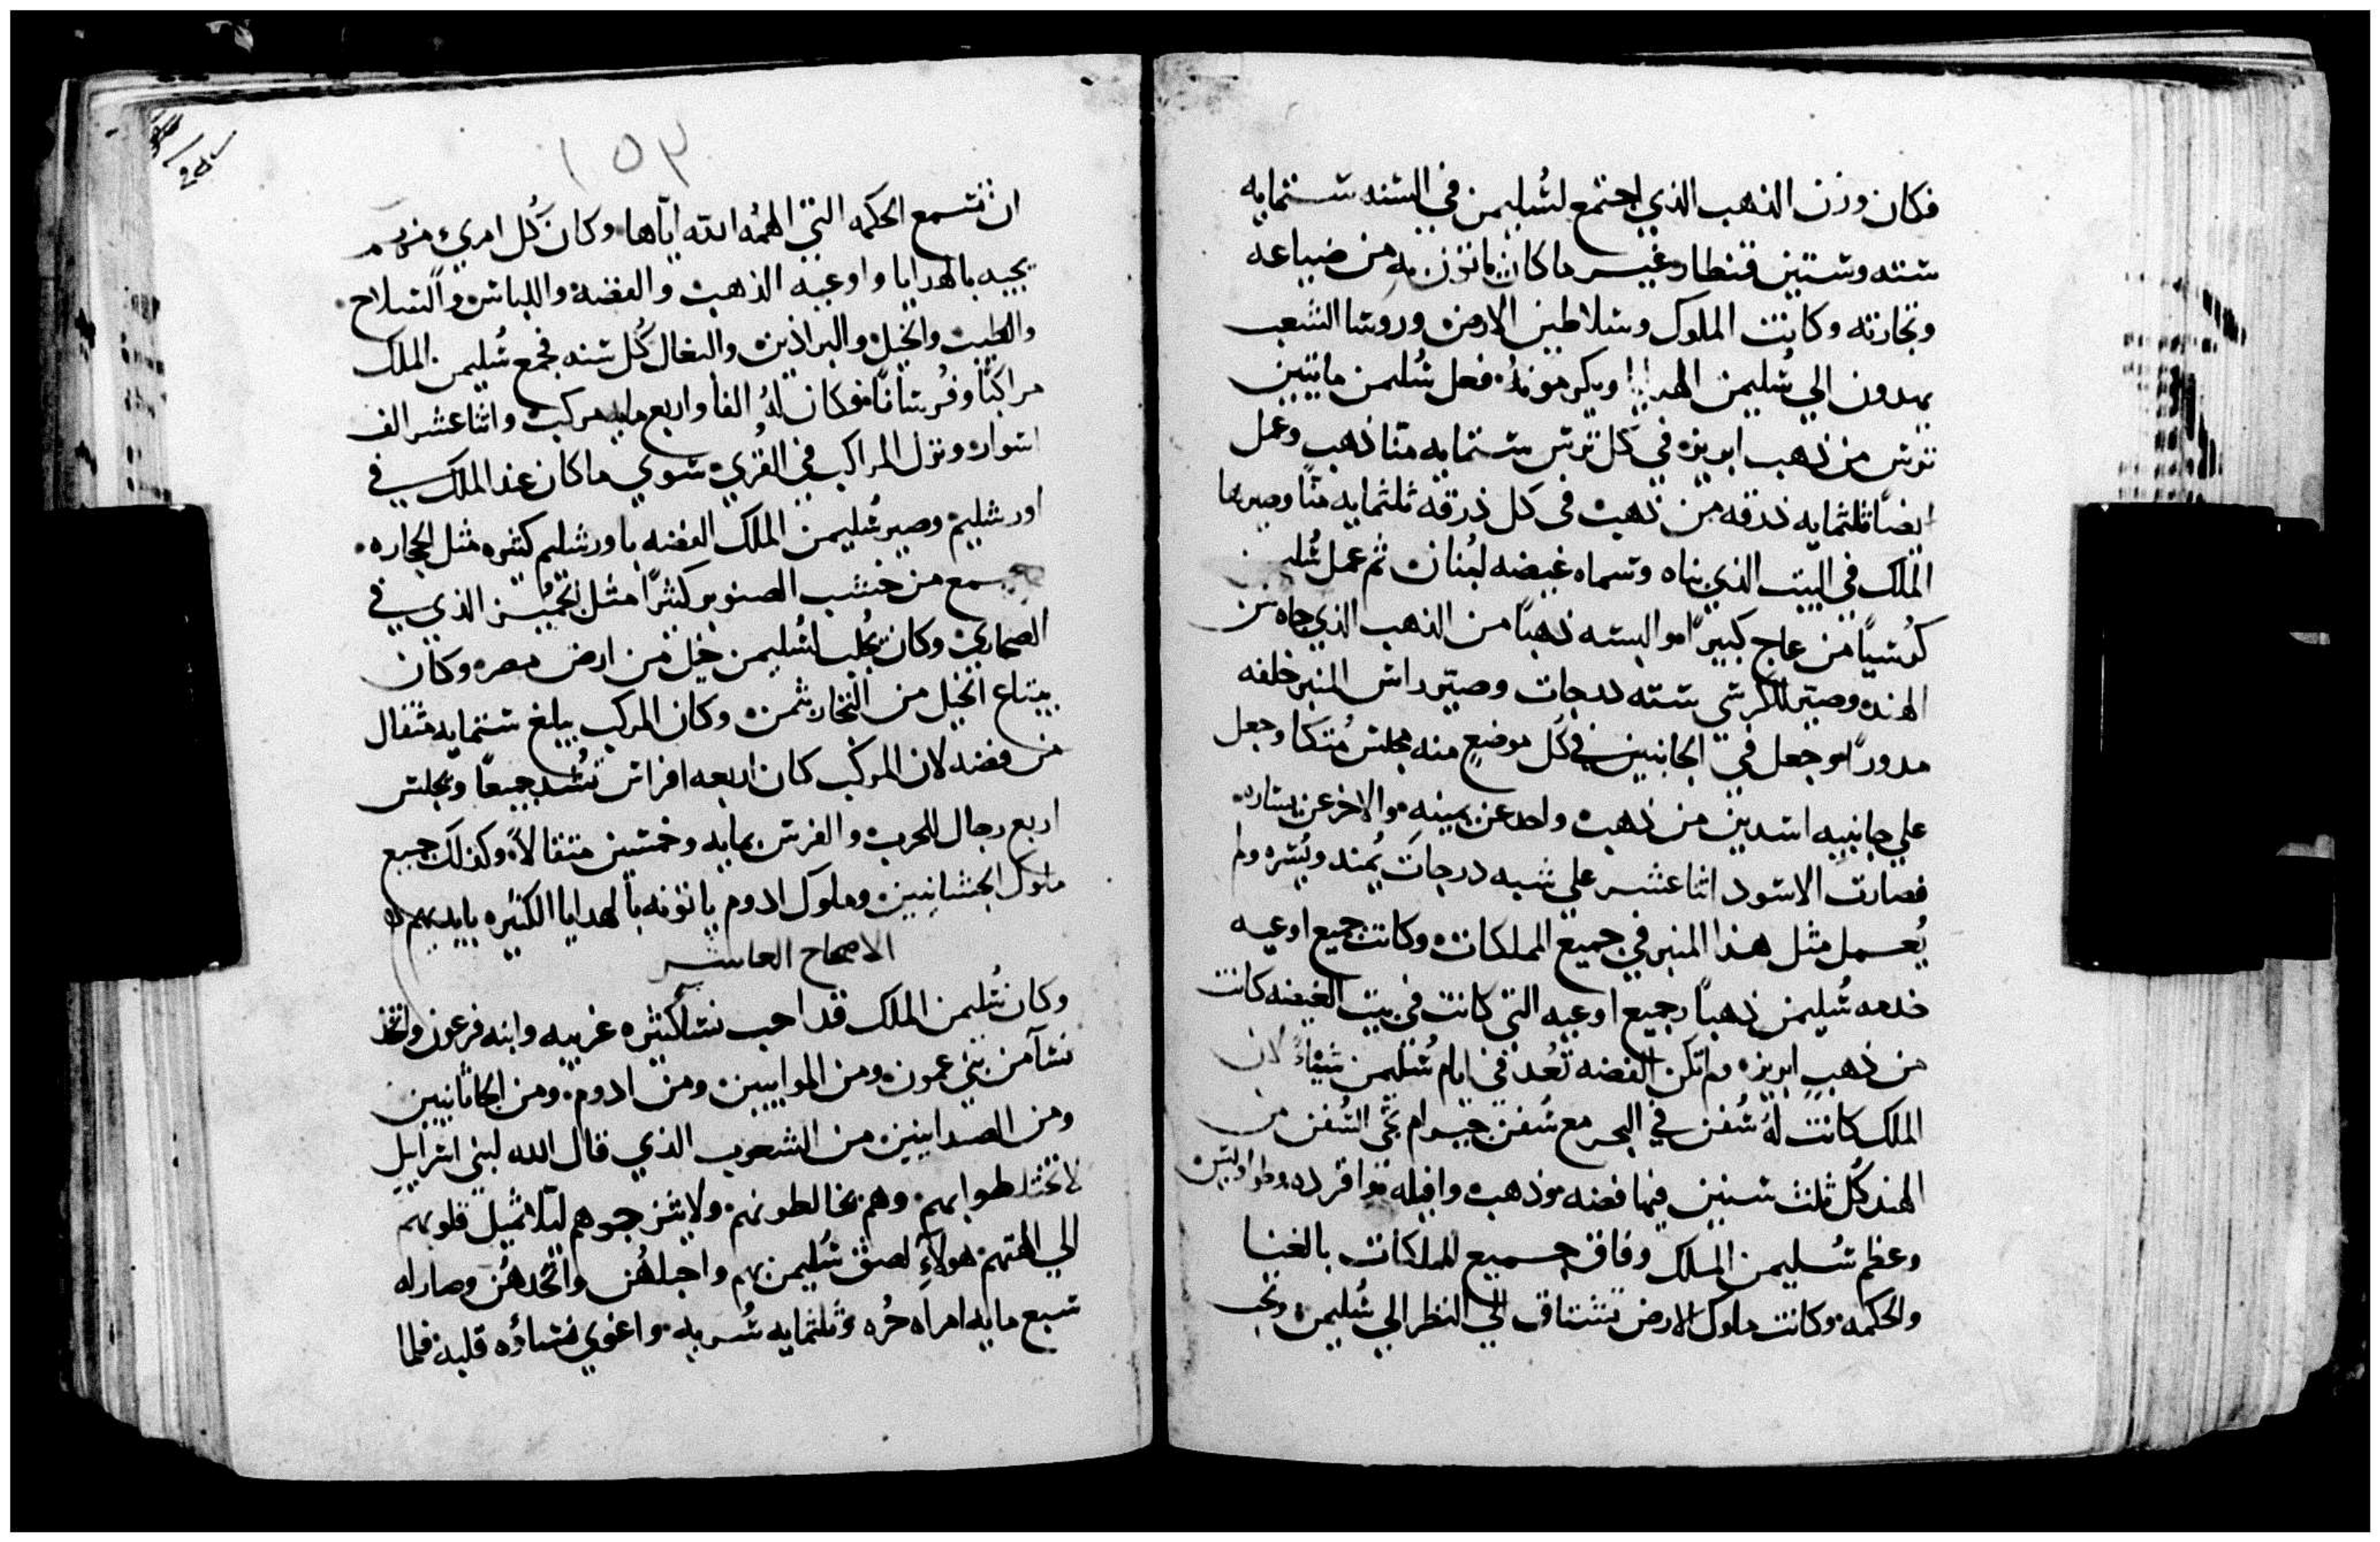 فكان وزن الذهب الذي اجتمع لسُليمن في السنه ستمايه
سته وستين قنطار غير ما كان ياتون به من ضياعه
وتجارته وكانت الملوك وسلاطين الارض وروسا الشعب
يهدون الي سُليمن الهدايا ويكرمونهُ فعل سُليمن مايتين
ترس من ذهب ابريزه في كل ترس ستمايه منا ذهب وعمل
ايضًا ثلثمايه درقه من ذهب في كل درقه ثلثمايه منًا وصيرها
الملك في البيت الذي بناه وسماه غيضه لبنان ثم عمل سُليمن
كرسيًا من عاج كبيرًا والبسه ذهبًا من الذهب الذي جاه من
الهند وصيّر للكرسي سته درجات وصيّر راس المنبر خلفه
مدورًا وجعل في الجانبين في كُل موضعٍ منه مجلس مُتكا وجعل
علي جانبيه اسدين من ذهب واحد عن يمينه والاخر عن يساره
فصارت الاسود اثنا عشر علي شبه درجات يُمنه ويُسره ولم
يُعمل مثل هذا المنبر في جميع المملكات وكانت جميع اوعيه
خدمه سُليمن ذهبًا وجميع اوعيه التي كانت في بيت الغيضه كانت
من ذهبٍ ابريزه ولم تكن الفضه تُعد في ايام سُليمن شياءً لان
الملك كانت لهُ سُفن في البحر مع سُفن حيرام تجي السُفن من
الهند كُل ثلث سنين فيها فضه وذهب وافيله وقرده وطواويس
وعظم سُليمن الملك وفاق جميع المملكات بالغنا
والحكمه وكانت ملوك الارض تشتاق الي النظر الي سُليمن وتحب
١٥٣
ان تسمع الحكمه التي الهمُه الله ايّاها وكان كُل امري منهم
يجيه بالهدايا واوعيه الذهب والفضه واللباس والسلاح
والطيب والخيل والبراذين والبغال كُل سنه فجمع سُليمن الملك
مراكبًا وفُرسانًا وكان لهُ الفا واربع مايه مركب واثنا عشر الف
اسوار ونزل المراكب في القُري سوي ما كان عند الملك في
اورشليم وصير سُليمن الملك الفضه باورشليم كثيره مثل الحجاره
من خشب الصنوبر كثيرًا مثل الجميّز الذي في
الصحاري وكان يُجلب لسُليمن خيل من ارض مصر وكان
يبتاع الخيل من التجار بثمن وكان المركب يبلغ ستمايه مثقال
من فضه لان المركب كان اربعه افراس تُشد جميعًا ويجلس
اربع رجال للحرب والفرس بمايه وخمسين مثقالاً وكذلك جميع
ملوك الحثانيين وملوك ادوم ياتونه بالهدايا الكثيره بايديهم
الاصحاح العاشر
وكان سُليمن الملك قد احب نسأ كثيره غريبه وابنه فرعون واتخذ
نسآ من بني عمون ومن الموابيين ومن ادوم ومن الحاثانيين
ومن الصيدانيين من الشعوب الذي قال الله لبني اسراييل
لا تختلطوا بهم وهم يخالطونهم ولا تتزجوهم ليلا تميل قلوبهم
الي الهتهم هولآءِ لصق سُليمن بهم واحبلهُن واتخدهُن وصار له
سبع مايه امراه حُره وثلثمايه سُريه واغوي نساؤه قلبه فلما